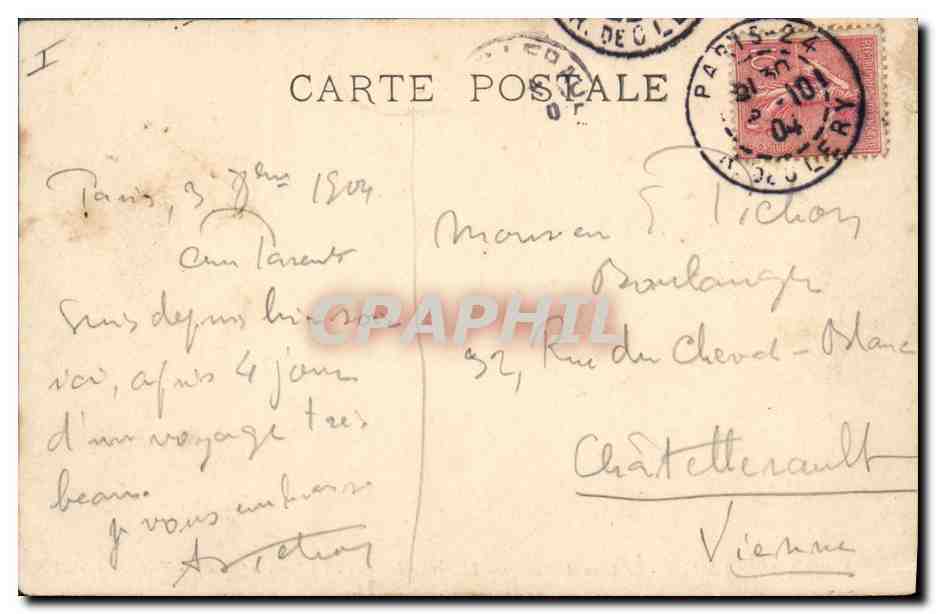 I
CARTE POSTALE
PARIS-24
R. DE CLERY
30
-10
04
R. DE CLE
Paris, 3 8bre 1904
Chers Parents
Suis depuis hier soir
ici, après 4 jours
d'un voyage très
beau.
je vous embrasse
A Pichon
Monsieur E. Pichon
Boulanger
32, Rue du Cheval-Blanc
Châtellerault
Vienne
CRAPHIL